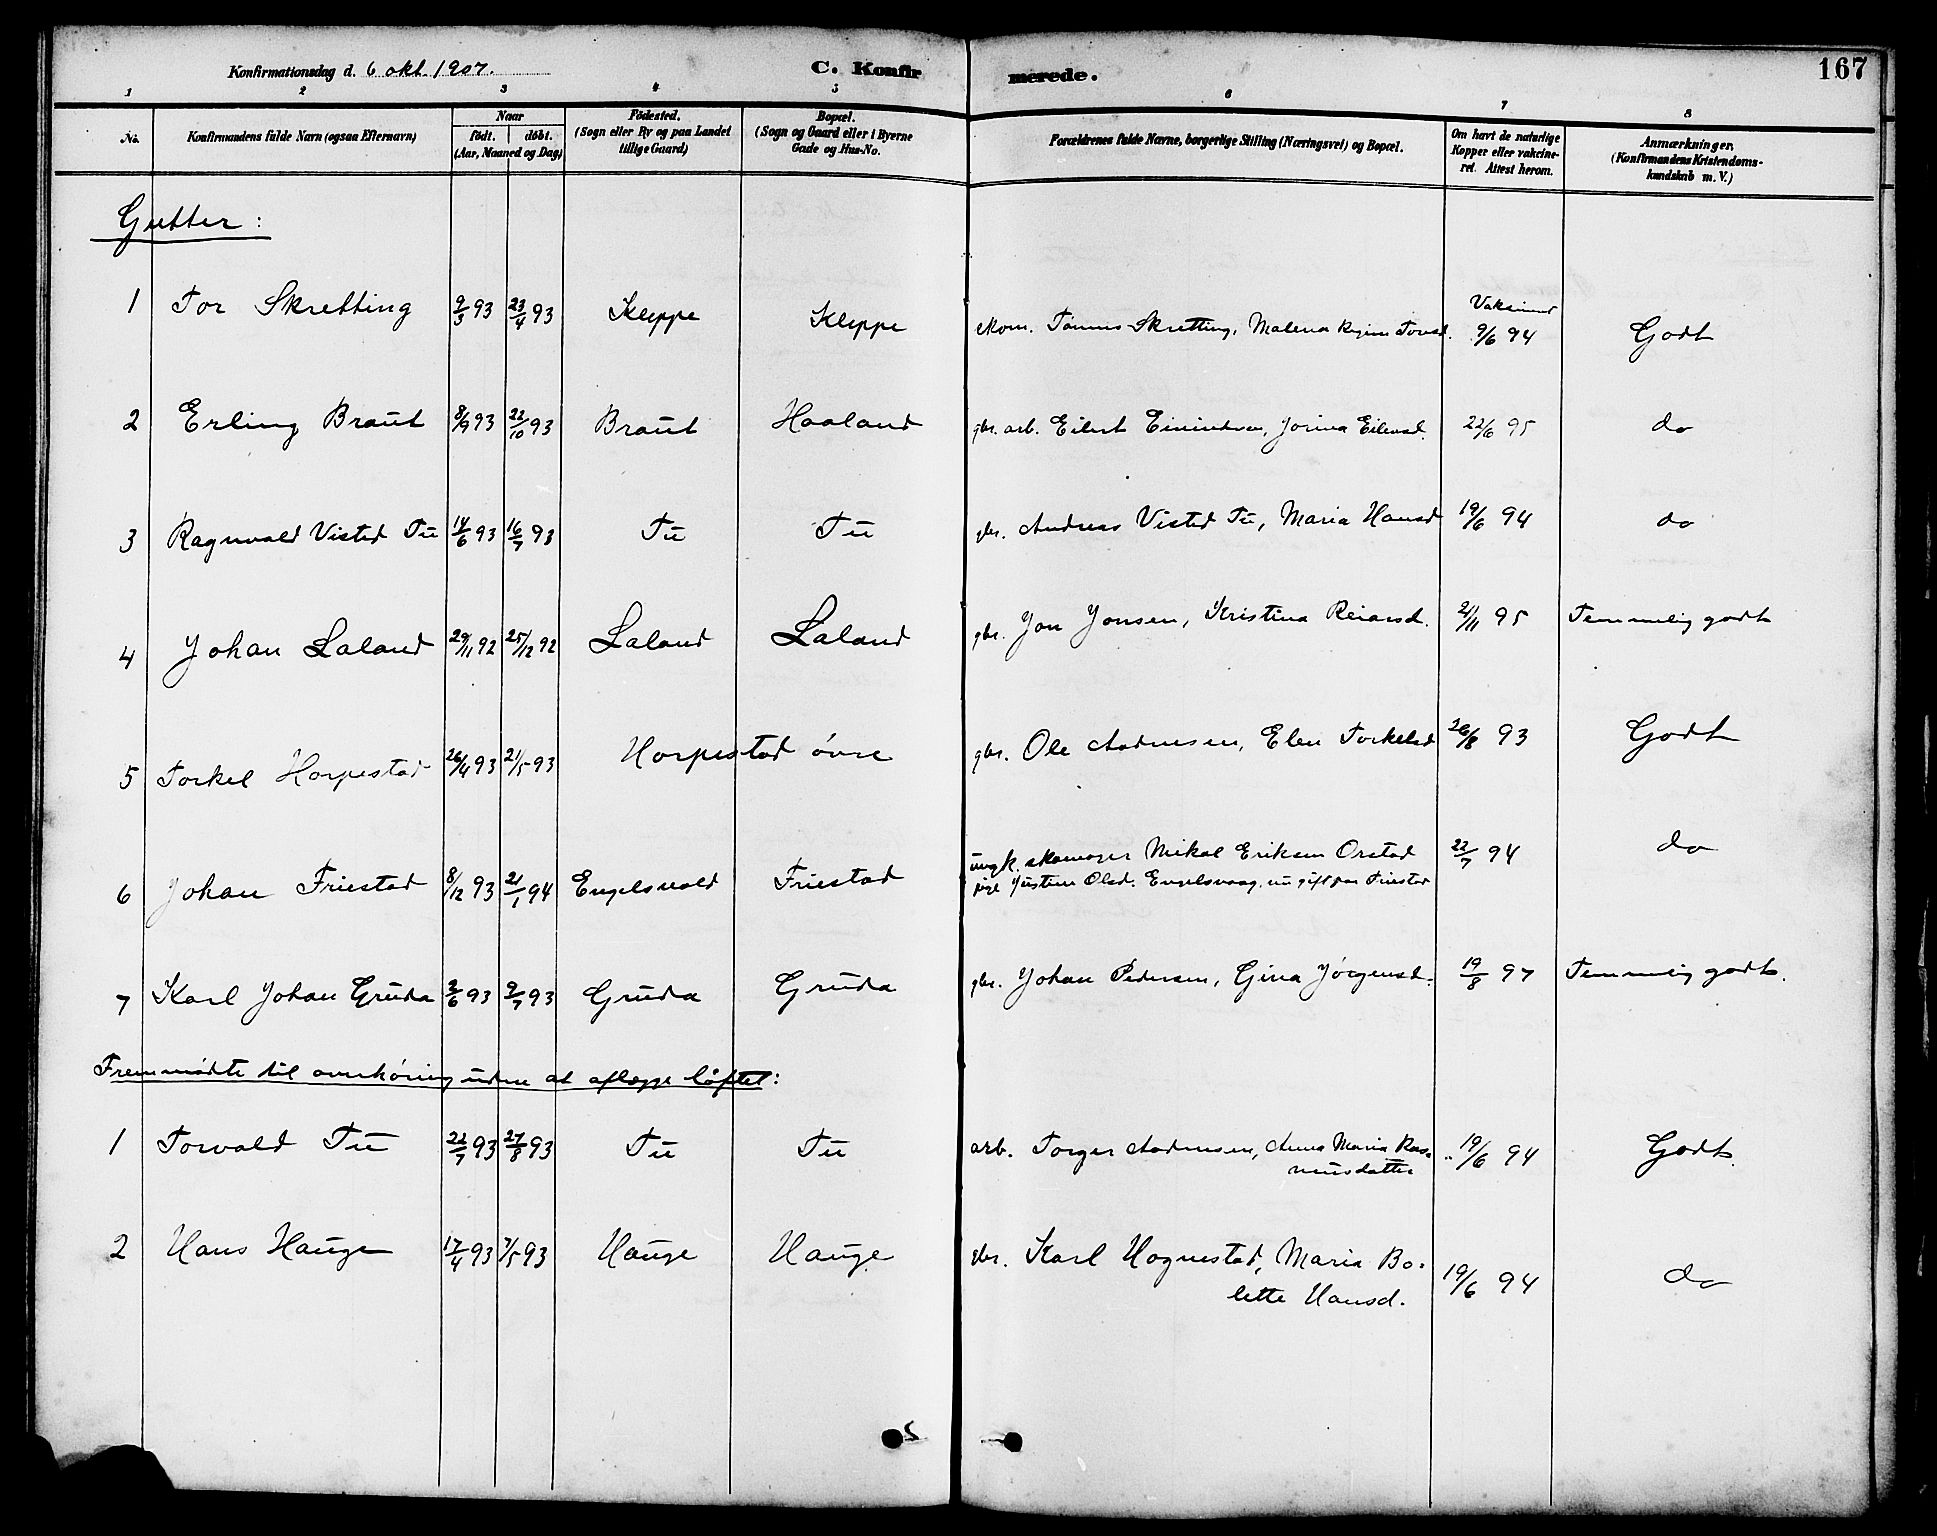 Konfirmationsdag d. 6 okt. 1907.
C. Konfirmerede.
167
1 2 3 4 5 6 7 8
No.
Konfirmandens fulde Navn (ogsaa Efternavn)
Naar
födt. döbt.
(Aar, Maaned og Dag)
Födested.
(Sogn eller By og paa Landet
tillige Gaard)
Bopæl.
(Sogn og Gaard eller i Byerne
Gade og Hus-No.
Forældrenes fulde Navne, borgerlige Stilling (Næringsvei) og Bopæl.
Om havt de naturlige
Kopper eller vakcine-
ret. Attest herom.
Anmærkninger.
(Konfirmandens Kristendoms-
kundskab m. V.)
Gutter:
1 Tor Skretting 9/3 93 23/4 93 Kleppe Kleppe skom. Tønnes Skretting, Malena Regine Torsd. Vaksinert 9/6 94 Godt
2 Erling Braut 8/9 93 22/10 93 Braut Haaland gbr. arb. Eilert, Jorina Eilersd. 22/6 95 do
3 Ragnvald Visted Tu 14/6 93 16/7 93 Tu Tu gbr. Andreas Visted Tu, Maria Hansd 19/6 94 do
4 Johan Laland 29/11 92 25/12 92 Laland Laland gbr. Jon Jonsen, Kristina Reiarsd. 2/11 95 Temmelig godt
5 Torkel Horpestad 26/4 93 21/5 93 Horpestad øvre gbr. Ole Andersen, Elen Torkelsd 26/8 93 Godt
6 Johan Friestad 8/12 93 21/1 94 Engelsvold Friestad ungk. skomager Mikal Eriksen Orstad 22/7 94 do
pige Justine Olsd. Engelsvaag, nu gift paa Friestad
7 Karl Johan Gruda 2/6 93 9/7 93 Gruda Gruda gbr. Johan Pedersen, Gina Jørgensd. 19/8 97 Temmelig godt.
Fremmødte til overhøring uden at aflægge løftet:
1 Torvald Tu 22/7 93 27/8 93 Tu Tu arb. Torger Andersen, Anna Maria Ras- 19/6 94 Godt.
musdatter
2 Hans Hauge 17/4 93 7/5 93 Hauge Hauge gbr. Karl Hognestad, Maria Bo- 19/6 94 do
lette Hansd.